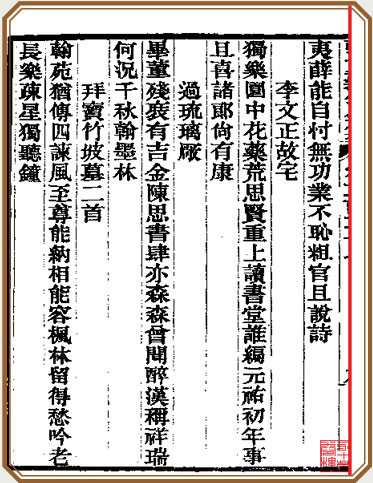 夷薛能自忖無功業不恥粗官且說詩
李文正故宅
獨樂園中花藥荒思賢重上讀書堂誰編元祐初年事
且喜諸郎尚有康
過琉璃厰
畢董殘裝有吉金陳思書肆亦森森曾聞醉漢稱祥瑞
何況千秋翰墨林
拜寶竹坡墓二首
翰苑猶傳四諫風至尊能納相能容楓林留得愁吟老
長樂疎星獨聽鐘